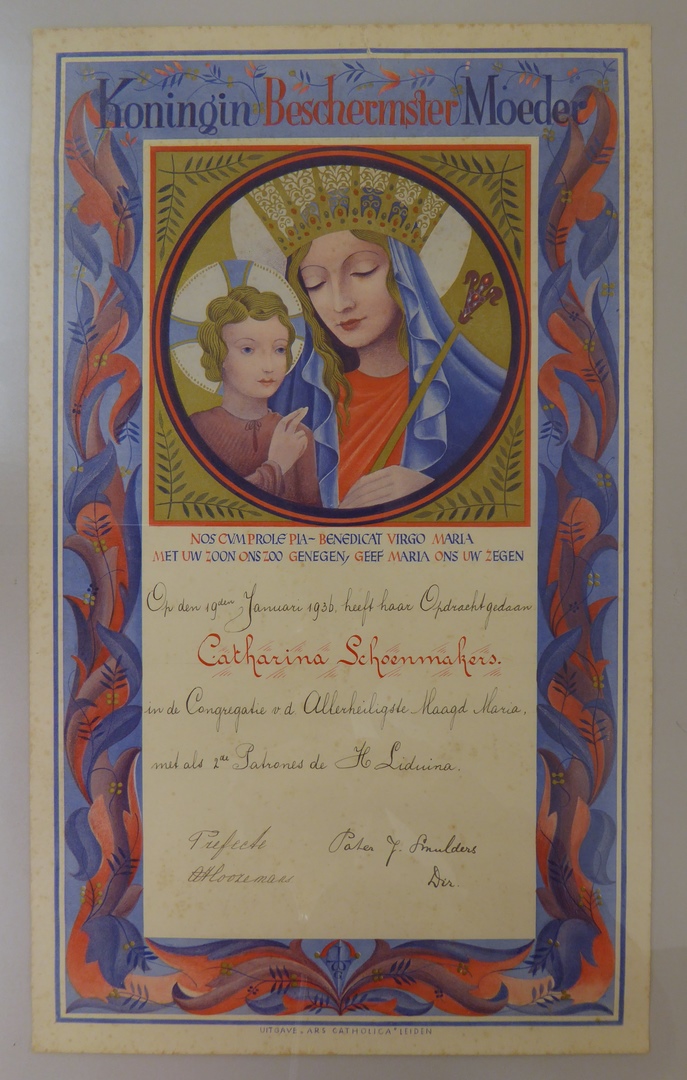 Koningin Beschermster Moeder
NOS CVM PROLE PIA~ BENEDICAT VIRGO MARIA
MET UW ZOON ONS ZOO GENEGEN, GEEF MARIA ONS UW ZEGEN
Op den 19den Januari 1936, heeft haar Opdracht gedaan
Catharina Schoenmakers.
in de Congregatie v.d. Allerheiligste Maagd Maria,
met als 2de Patrones de H Liduina.
Prefecte Pater J. Smulders
Dir.
UITGAVE „ARS CATHOLICA" LEIDEN